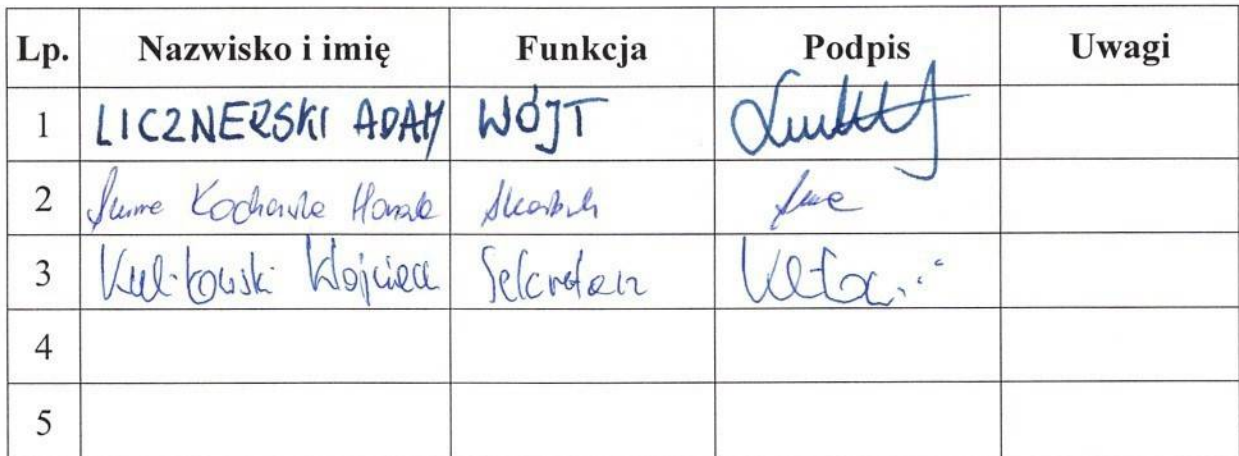 Lp. Nazwisko i imię Funkcja Podpis Uwagi
1 LICZNERSKI ADAM WÓJT
2 Skarbnik
3 Kulikowski Wojciech Sekretarz
4
5